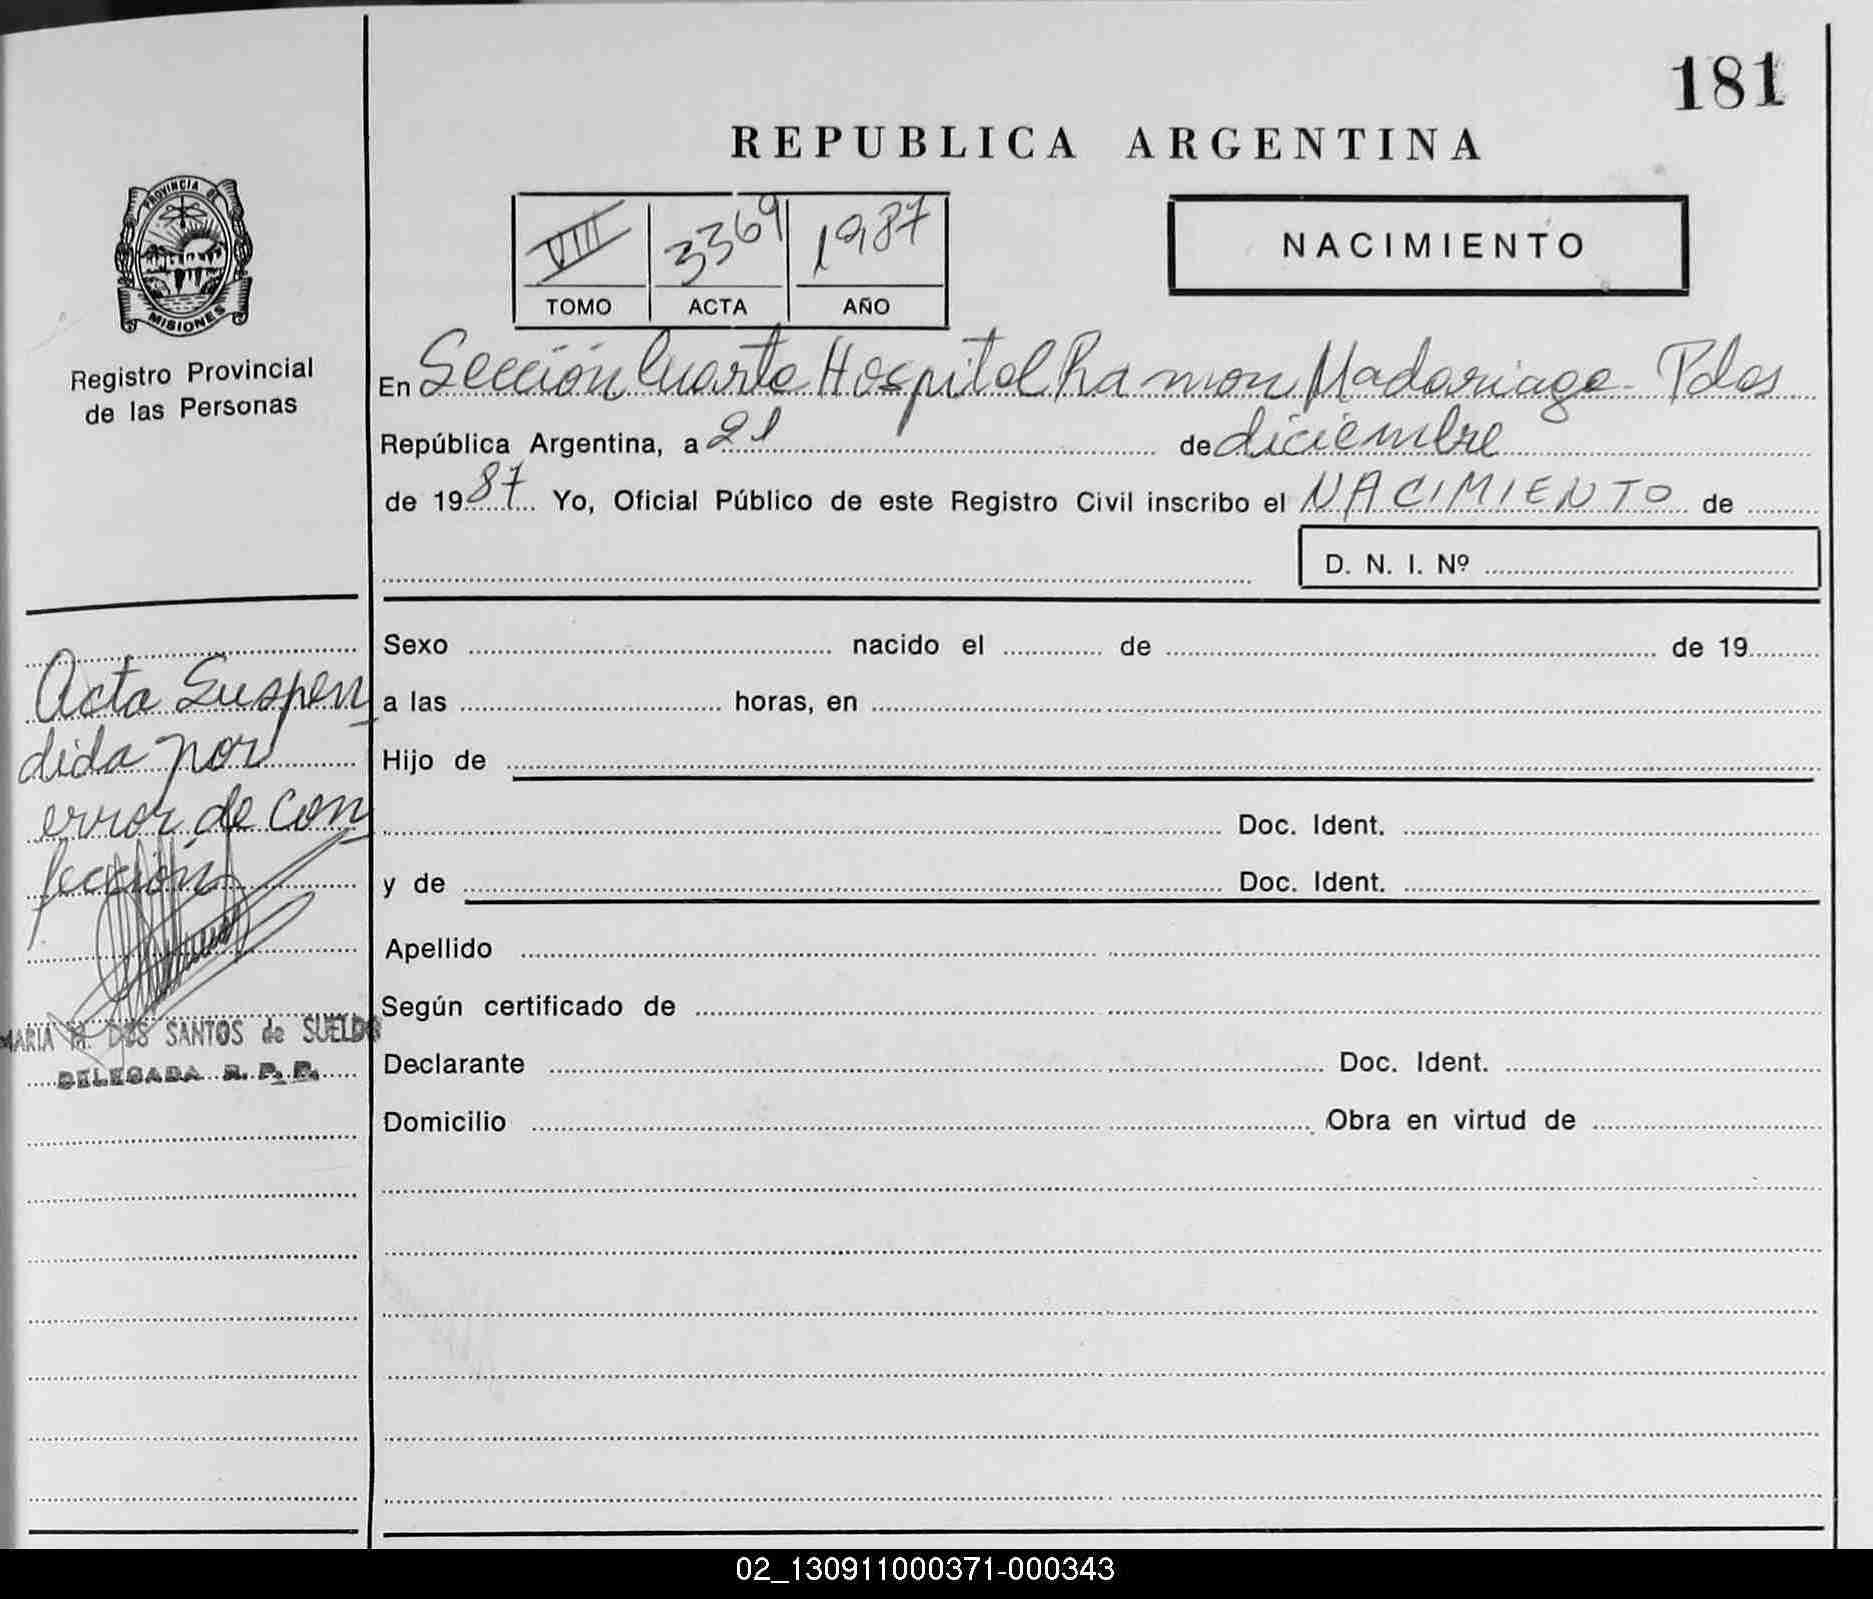 181
REPUBLICA ARGENTINA
PROVINCIA DE
MISIONES
Registro Provincial
de las Personas
VIII 3369 1987
TOMO ACTA AÑO
NACIMIENTO
En Sección Cuarta Hospital Ramon Madariaga - Pdas
República Argentina, a 21 de diciembre
de 1987 Yo, Oficial Público de este Registro Civil inscribo el NACIMIENTO de
D. N. I. Nº
Sexo nacido el de de 19
a las horas, en
Hijo de
Doc. Ident.
y de Doc. Ident.
Apellido
Según certificado de
Declarante Doc. Ident.
Domicilio Obra en virtud de
Acta Suspen
dida por
error de con
fección
MARIA M. DOS SANTOS de SUELDO
DELEGADA R. P. P.
02_130911000371-000343